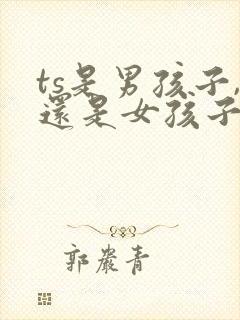 ts是男孩子,
還是女孩子
郭嚴青